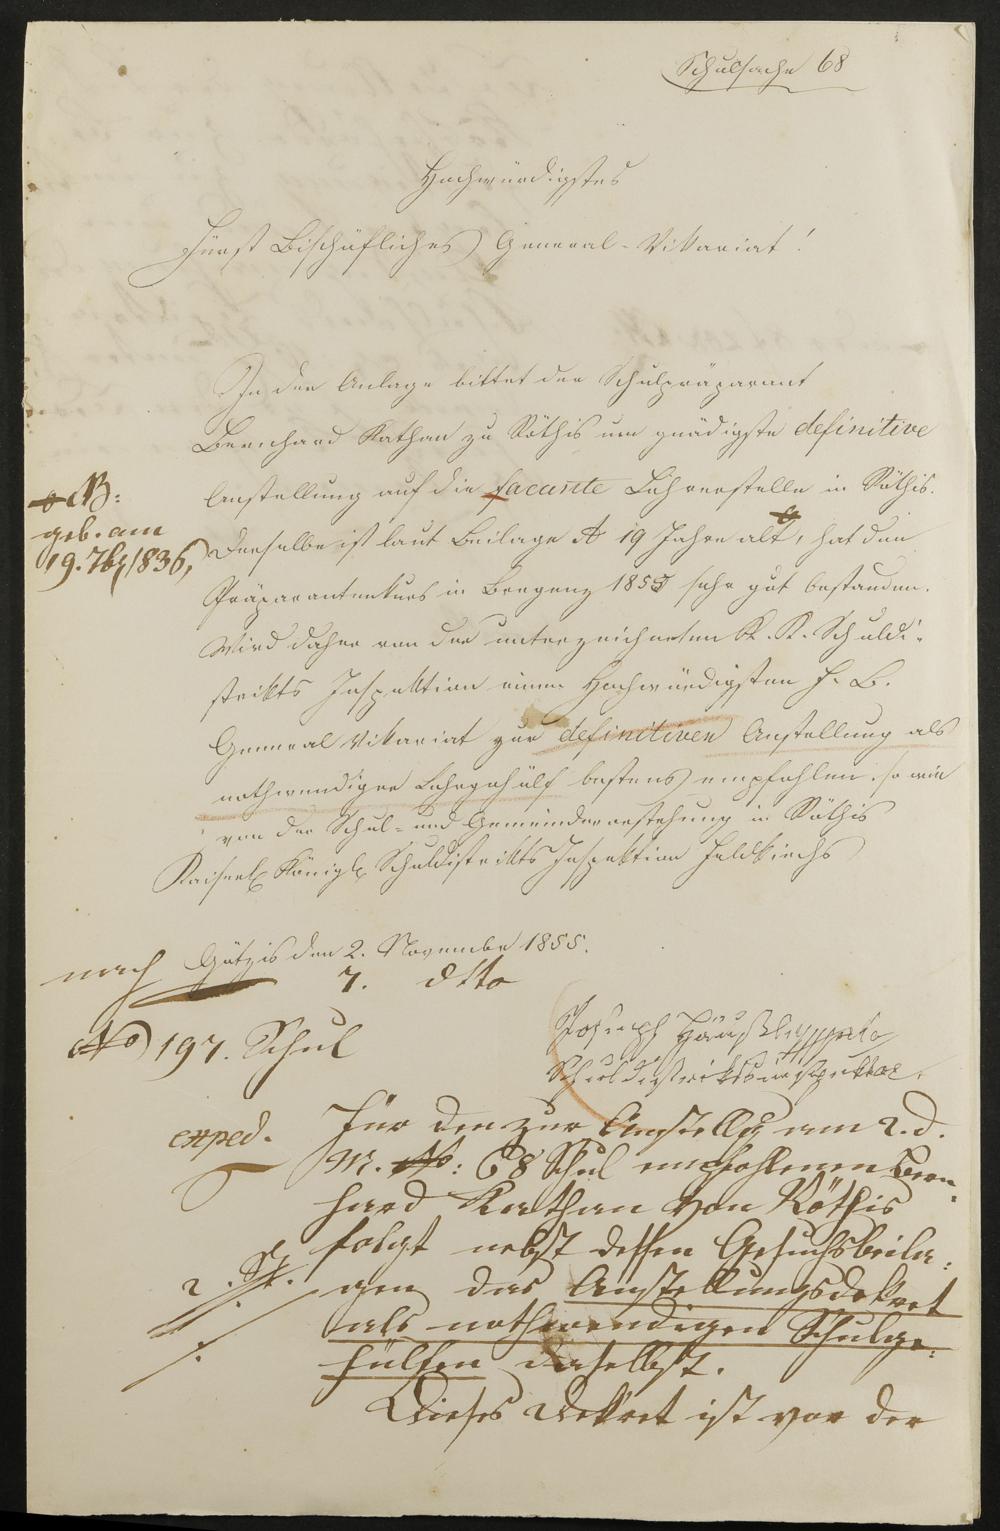 Schulsache 68
Hochwürdigstes
Fürst Bischöfliches General-Vikariat!
In der Anlage bittet der Schulpräparant
Bernhard Kathan zu Röthis um gnädigste definitive
Anstellung auf die facante Lehrerstelle in Röthis.
NB:
geb. am
19. 7br 1836,
Derselbe ist laut Beilage A 19 Jahre alt, hat den
Präparantenkurs in Bregenz 1855 sehr gut bestanden.
Wird daher von der unterzeichneten K. K. Schuldi-
strikts Inspektion einem Hochwürdigsten F. B.
General Vikariat zur definitiven Anstellung als
nothwendiger Lehrgehülf bestens empfohlen. so wie
von der Schul- und Gemeindevorstehung in Röthis
Kaiserl Königl Schuldistrikts Inspektion Feldkirchs
Götzis den 2. November 1855.
nach 7. dtto
No 197. Schul
Joseph
Schuldistriktsinspektor.
exped. Für den zur Anstellg am 2. d.
M. No: 68 Schul empfohlenen Bern-
hard Kathan von Röthis
folgt nebst dessen Gesuchsbeila-
2. gen das Anstellungsdekret
als nothwendigen Schulge-
hülfen daselbst.
Dieses Dekret ist vor der